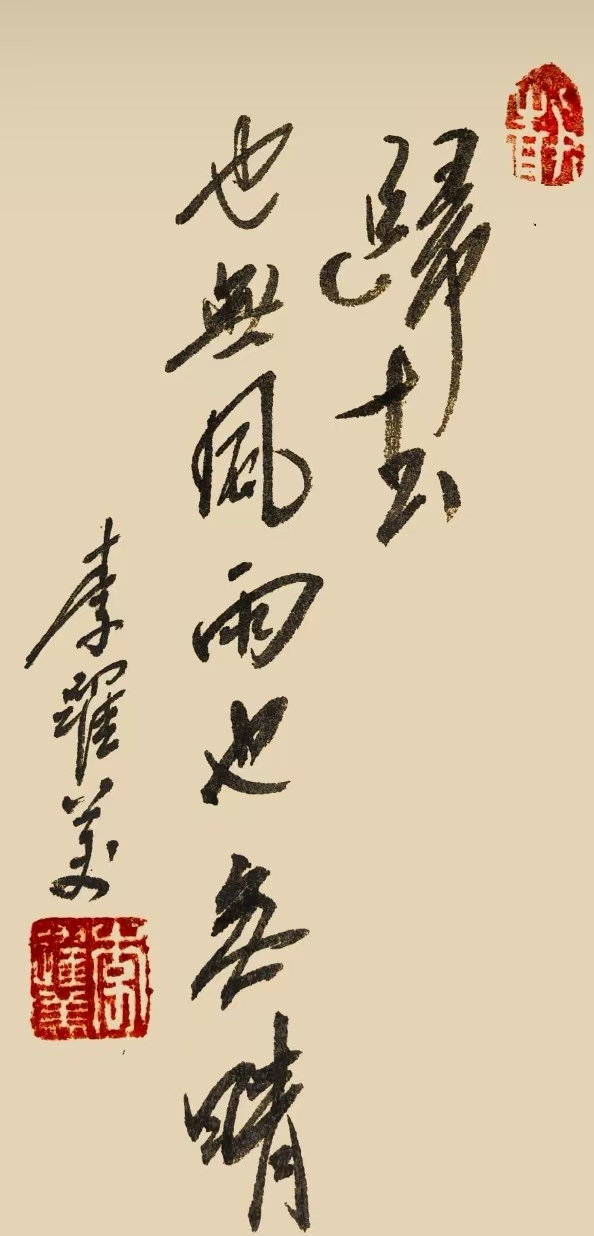 歸去
也無風雨也無晴
李躍美